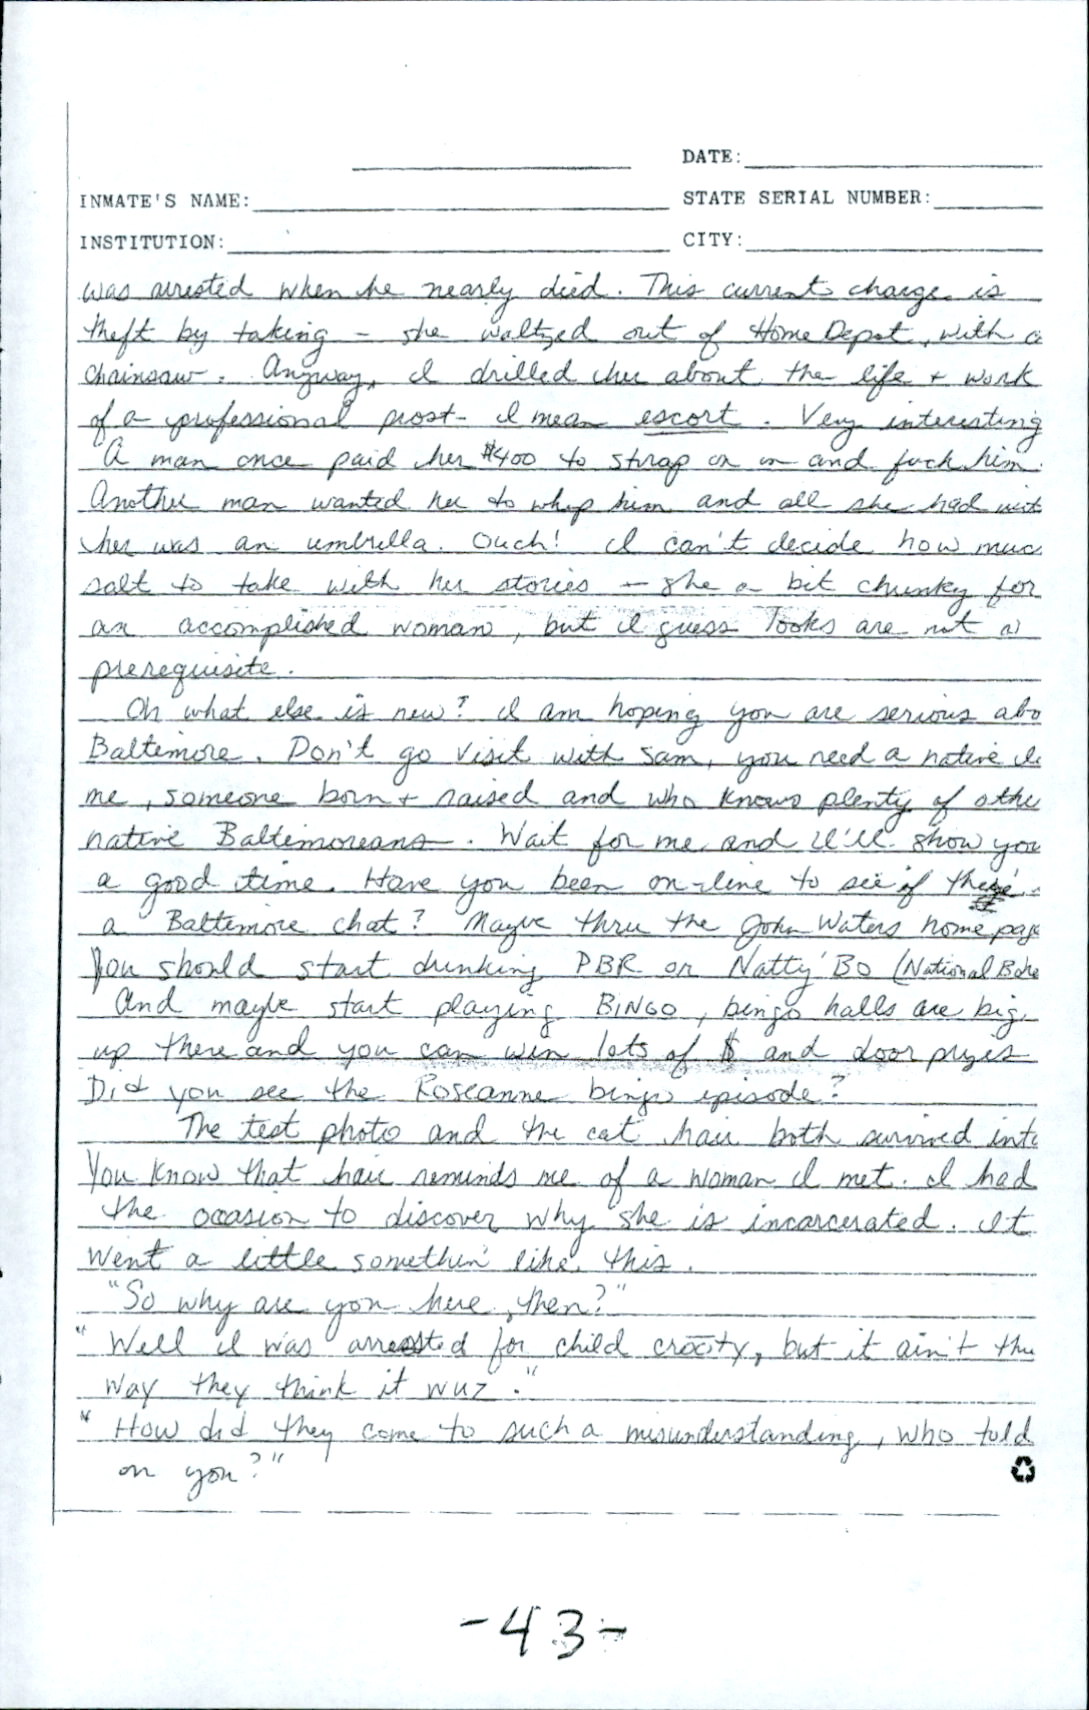 DATE:
INMATE'S NAME: STATE SERIAL NUMBER:
INSTITUTION: CITY:
was arrested when he nearly died. This current charge is
theft by taking – she waltzed out of Home Depot, with a
chainsaw. Anyway, I drilled her about the life + work
of a professional prost- I mean escort. Very interesting
A man once paid her $400 to strap on and fuck him.
Another man wanted her to whip him and all she had with
her was an umbrella. Ouch! I can't decide how muc
salt to take with her stories – she a bit chunky for
an accomplished woman, but I guess looks are not a
prerequisite.
Oh what else is new? I am hoping you are serious abo
Baltimore. Don't go visit with Sam, you need a native li
me, someone born + raised and who knows plenty of othe
native Baltimoreans. Wait for me and I'll show you
a good time. Have you been on-line to see if there's
a Baltimore chat? Maybe thru the John Waters home page
You should start drinking PBR or Natty Bo (National Bohe
And maybe start playing BINGO, bingo halls are big
up there and you can win lots of $ and door prizes
Did you see the Roseanne bingo episode?
The test photo and the cat hair both survived inta
You know that hair reminds me of a woman I met. I had
the occasion to discover why she is incarcerated. It
went a little somethin' like this.
"So why are you here, then?"
"Well I was arrested for child croolty, but it ain't the
way they think it wuz."
"How did they come to such a misunderstanding, who told
on you?"
-43-